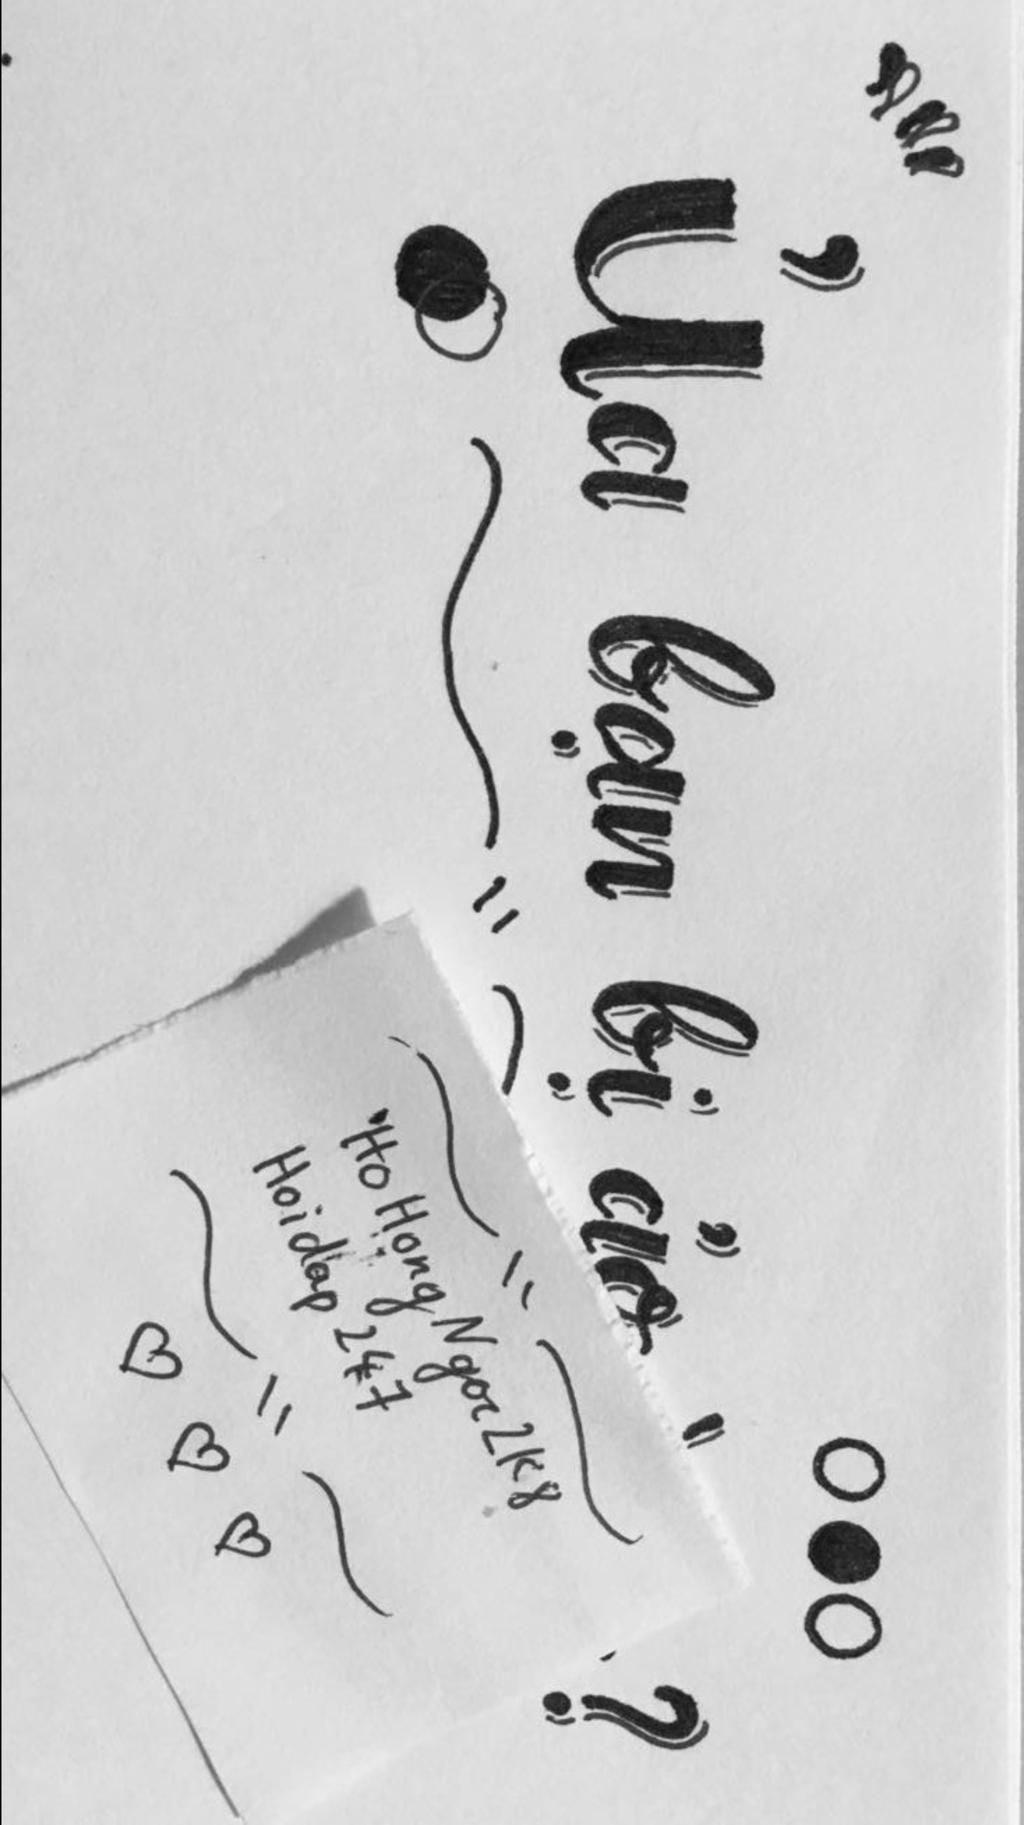 Ủa bạn bị ảo ?
Ho Hong Ngoc2k8
Hoidap 247